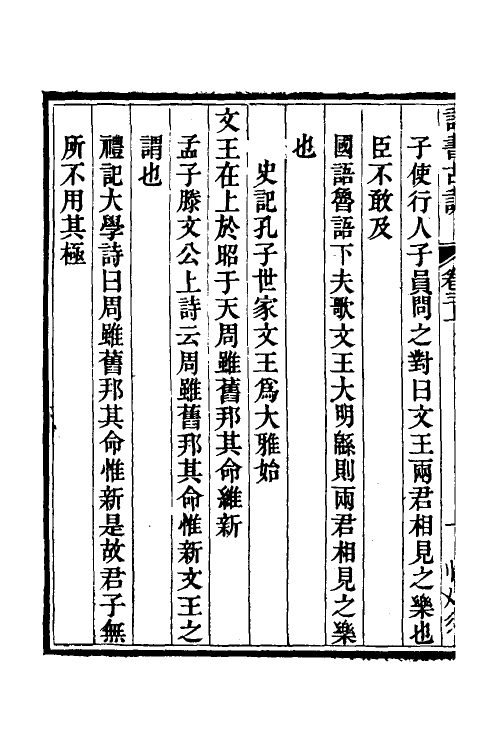 子使行人子員問之對曰文王兩君相見之樂也
臣不敢及
國語魯語下夫歌文王大明緜則兩君相見之樂
也
史記孔子世家文王爲大雅始
文王在上於昭于天周雖舊邦其命維新
孟子滕文公上詩云周雖舊邦其命惟新文王之
謂也
禮記大學詩曰周雖舊邦其命惟新是故君子無
所不用其極